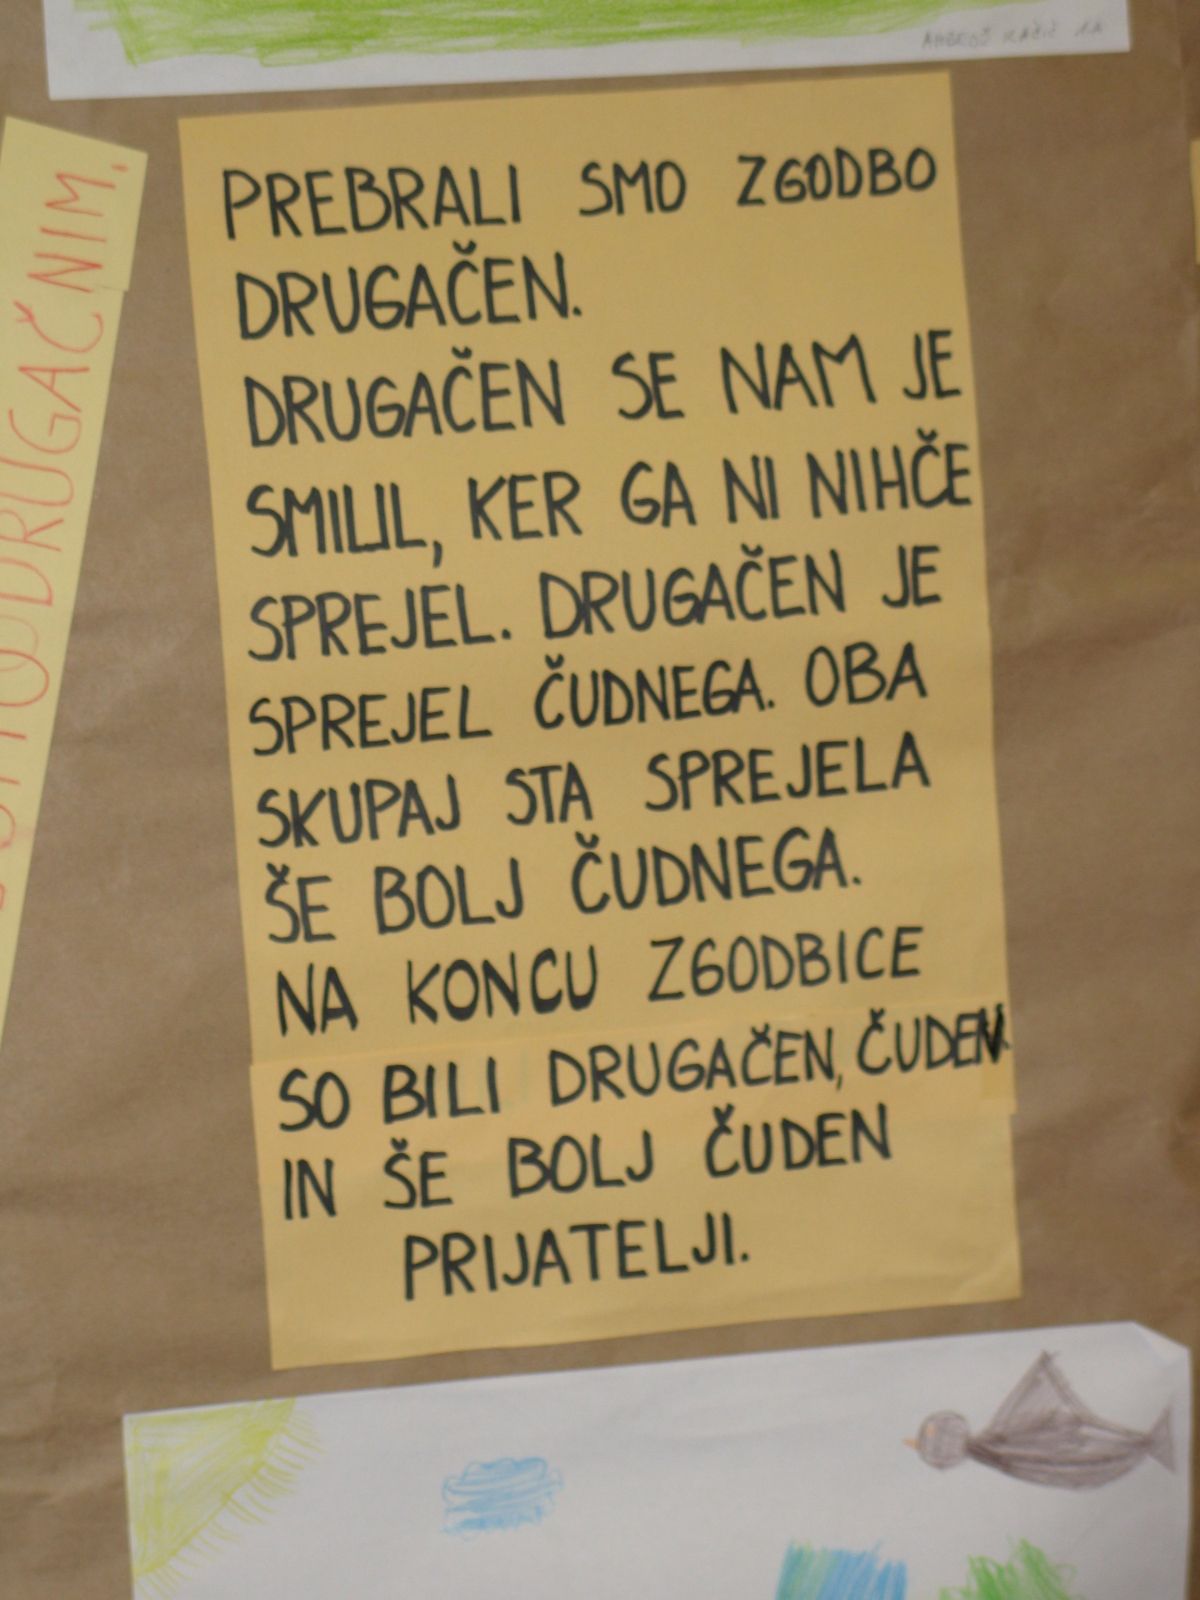 PREBRALI SMO ZGODBO
DRUGAČEN.
DRUGAČEN SE NAM JE
SMILIL, KER GA NI NIHČE
SPREJEL. DRUGAČEN JE
SPREJEL ČUDNEGA. OBA
SKUPAJ STA SPREJELA
ŠE BOLJ ČUDNEGA.
NA KONCU ZGODBICE
SO BILI DRUGAČEN, ČUDEN
IN ŠE BOLJ ČUDEN
PRIJATELJI.
DRUGAČNIM.